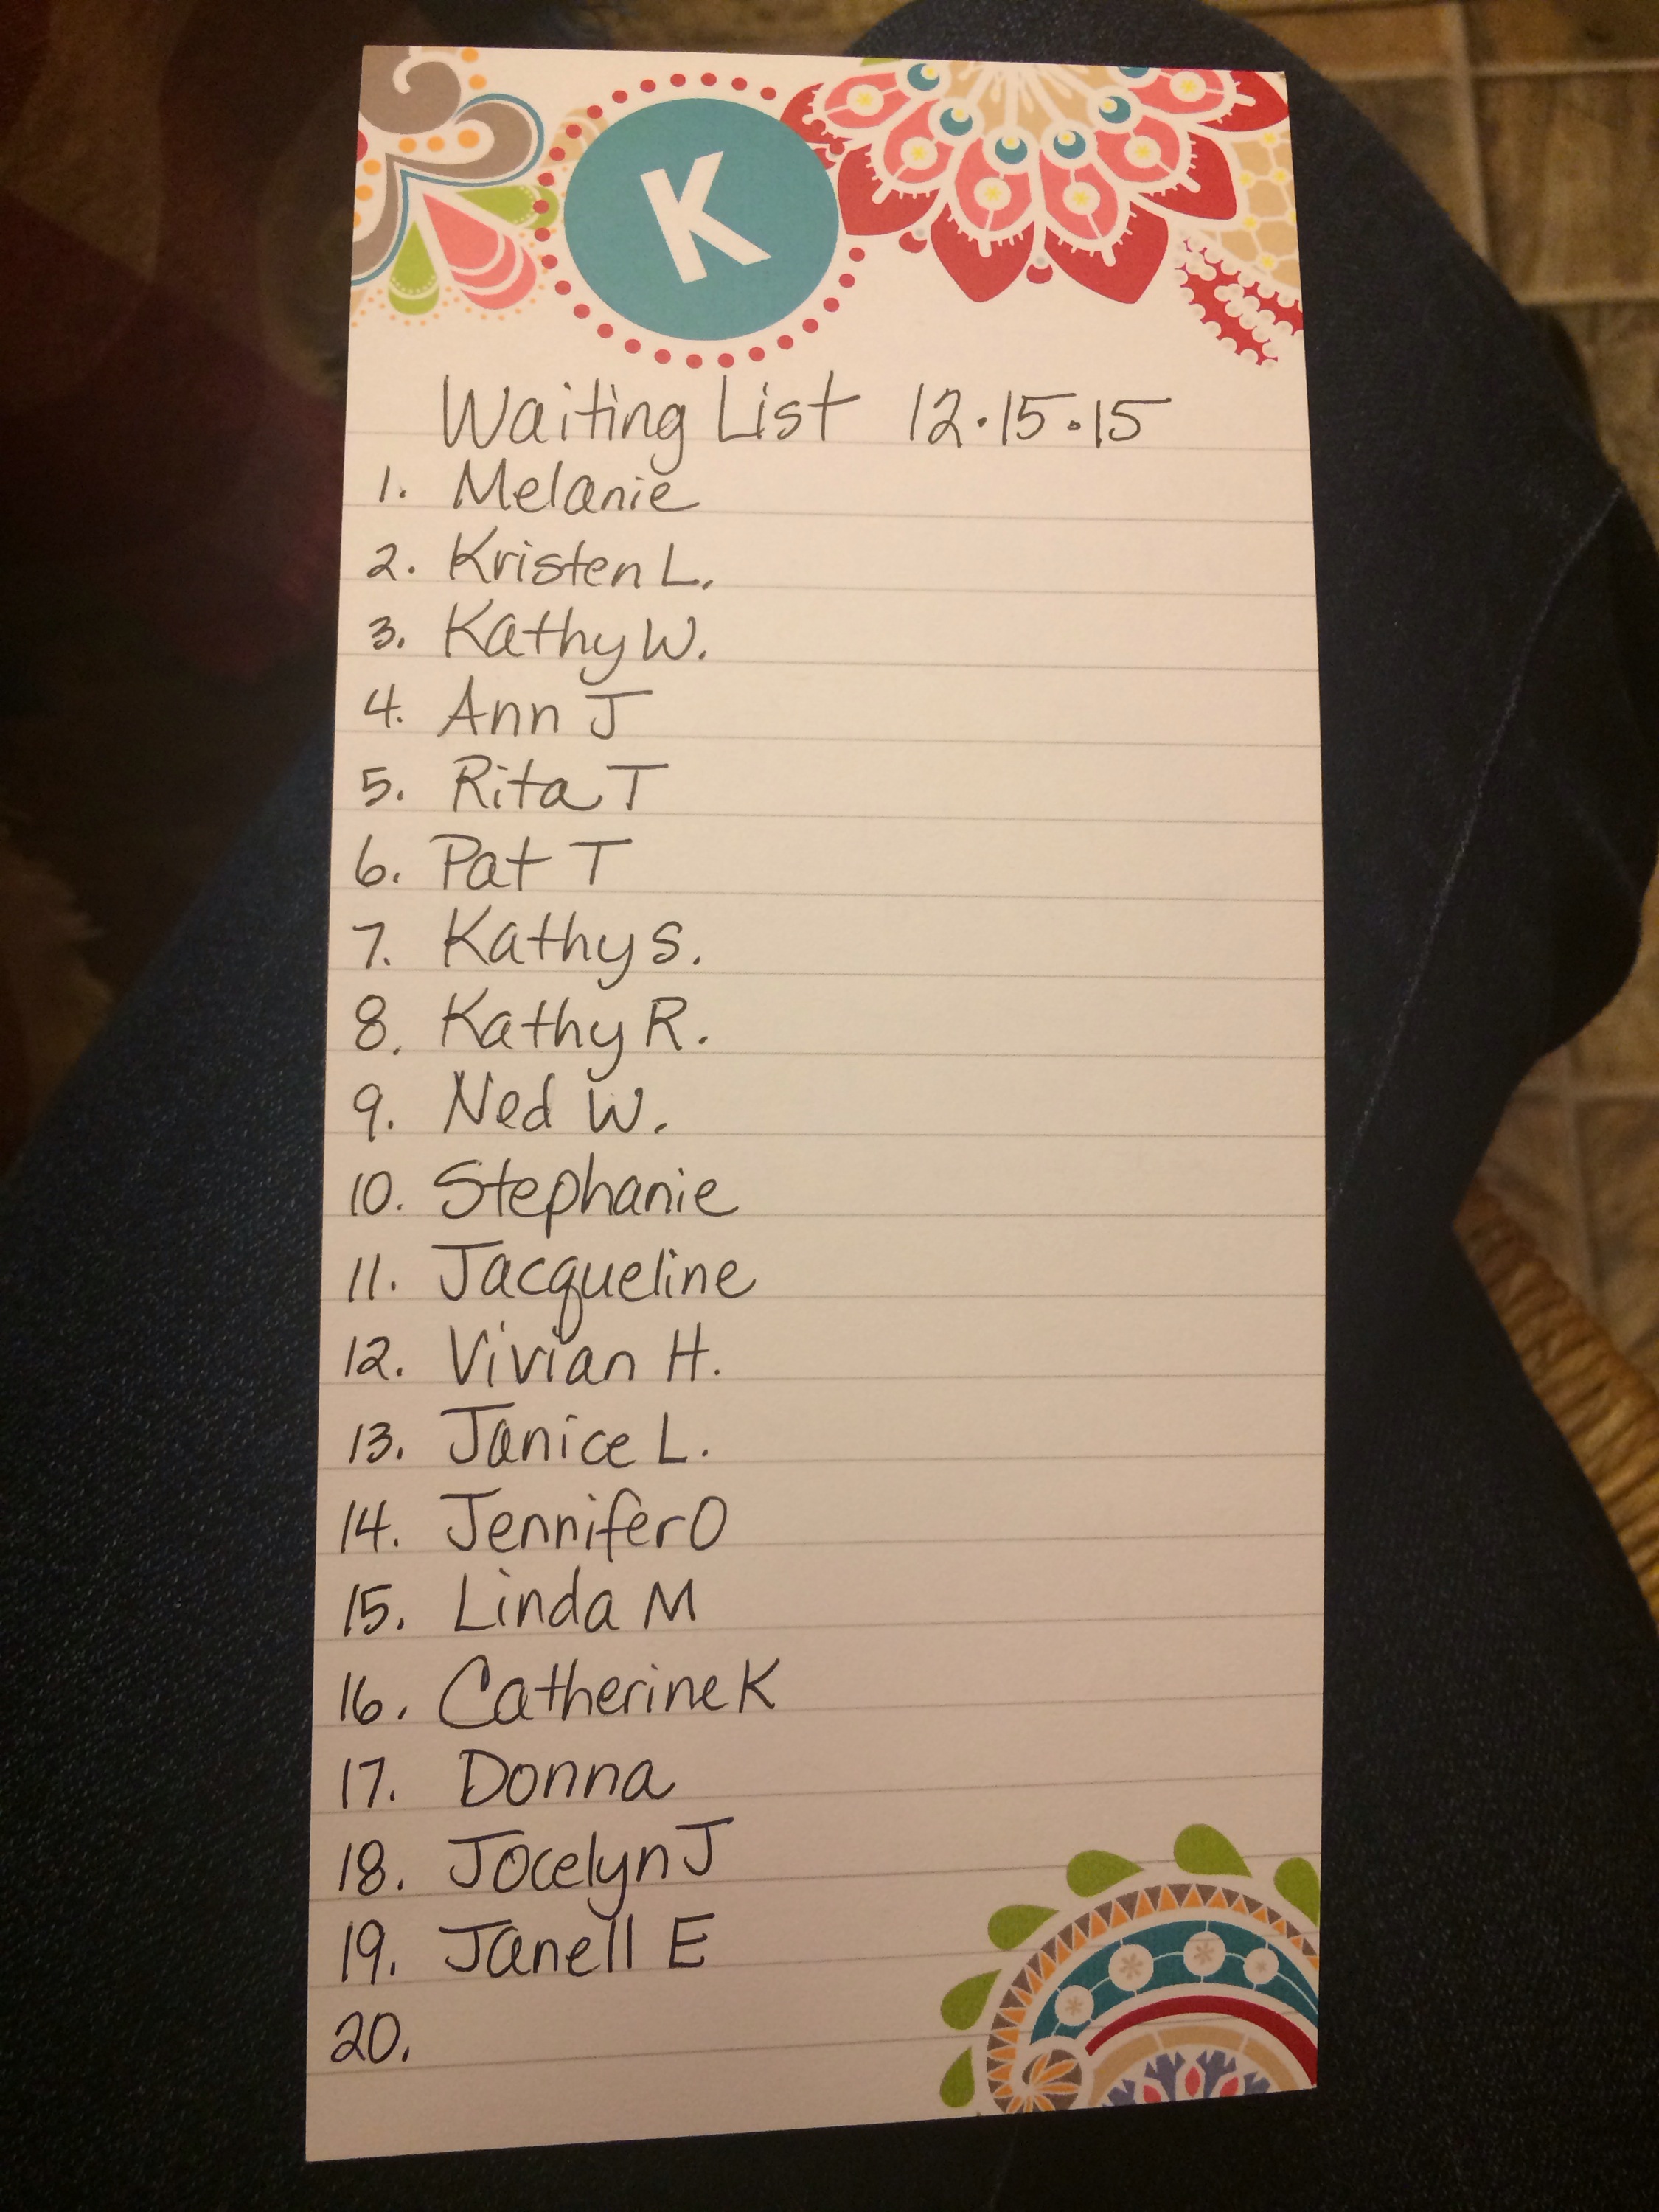 K
Waiting List 12.15.15
1. Melanie
2. Kristen L.
3. Kathy W.
4. Ann J
5. Rita T
6. Pat T
7. Kathy S.
8. Kathy R.
9. Ned W.
10. Stephanie
11. Jacqueline
12. Vivian H.
13. Janice L.
14. Jennifer O
15. Linda M
16. Catherine K
17. Donna
18. Jocelyn J
19. Janell E
20.